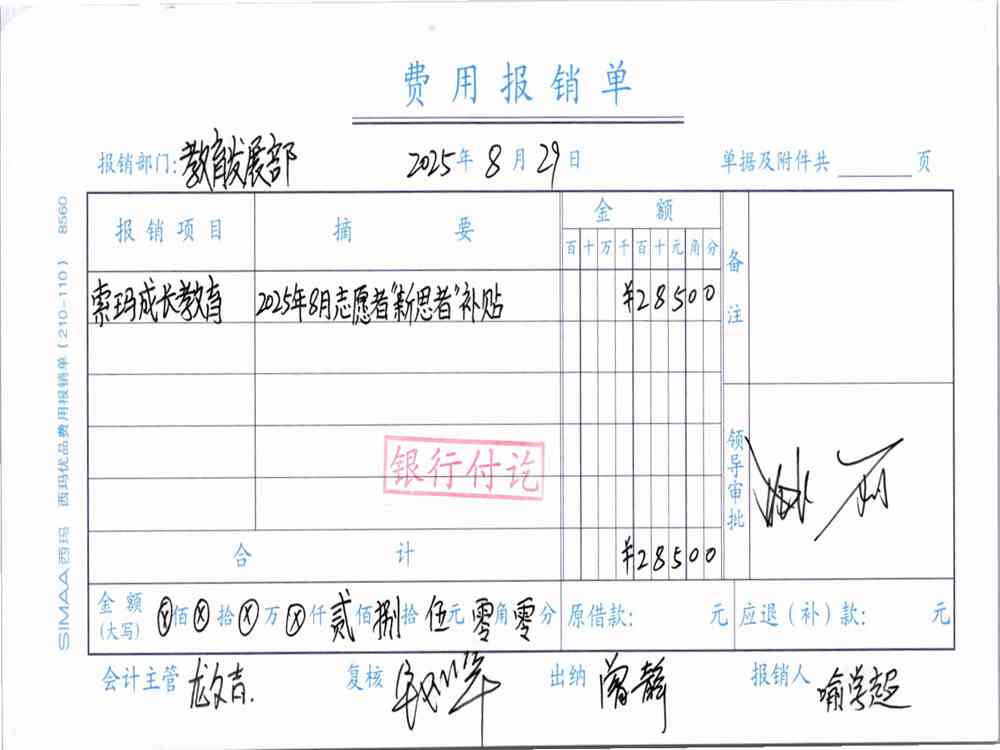 费用报销单
报销部门:教育发展部 2025年8月29日 单据及附件共 页
报销项目 摘要 金额 备注
百十万千百十元角分
索玛成长教育 2025年8月志愿者"新思者"补贴 ¥28500
银行付讫
领导审批
合计 ¥28500
金额(大写) ⊗佰⊗拾⊗万⊗仟贰佰捌拾伍元零角零分 原借款: 元 应退(补)款: 元
会计主管 龙文吉. 复核 出纳 曾静 报销人 喻学超
SIMAA西玛 西玛优品费用报销单(210-110) 8560